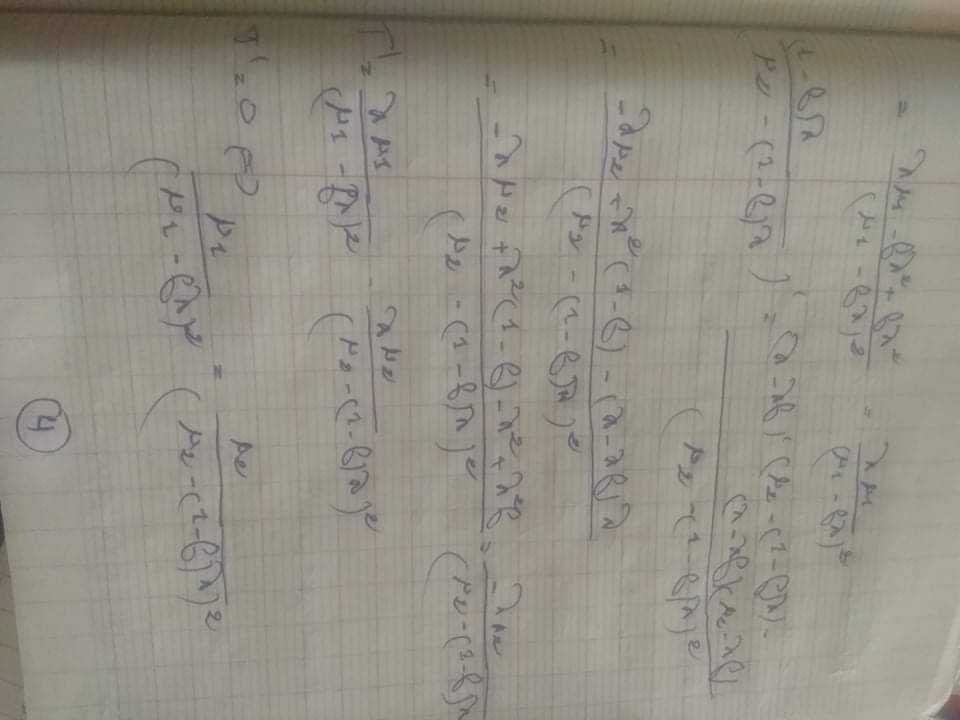 = (λμ1 - βλ² + βλ²) / (μ1 - βλ)² = λμ1 / (μ1 - βλ)²
((1-β)λ / (μ2 - (1-β)λ))' = ((λ - λβ)' (μ2 - (1-β)λ) - (λ - λβ)(μ2 - λβ)) / (μ2 - (1-β)λ)²
= (-λμ2 + λ²(1-β) - (λ - λβ)λ) / (μ2 - (1-β)λ)²
= (-λμ2 + λ²(1-β) - λ² + λ²β) / (μ2 - (1-β)λ)² = -λμ2 / (μ2 - (1-β)λ
T' = λμ1 / (μ1 - βλ)² - λμ2 / (μ2 - (1-β)λ)²
T' = 0 ⇔ μ1 / (μ1 - βλ)² = μ2 / (μ2 - (1-β)λ)²
4